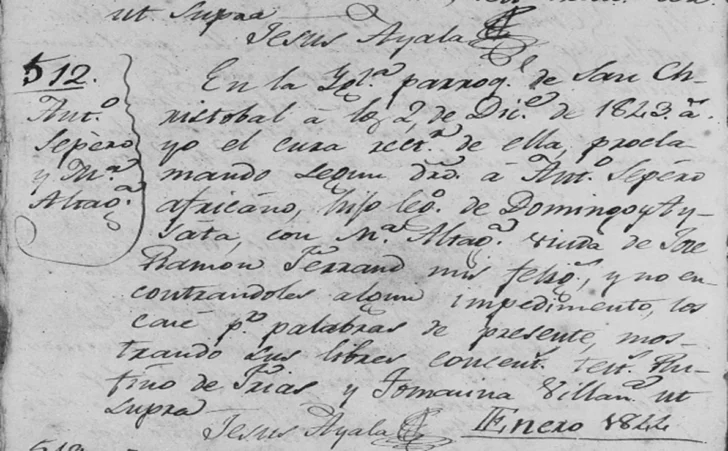 ut supra
Jesus Ayala
512.
Ant.º
Sepèro
y M.ª
Altag.ª
En la Ygl.ª parroq.l de San Ch-
ristobal à los 2 de Dic.e de 1843. a.s
yo el cura rect.r de ella, procla-
mando segun dro. à Ant.º Sepéro
africano, hijo leg.º de Domingo y Ay-
sata, con M.ª Altag.ª viuda de Jose
Ramon Ferrand mis felig.s, y no en-
contrandoles algun impedimento, los
casé p.r palabras de presente, mos-
trando sus libres concent.s test.s Ru-
fino de Frias y Tomasina Villan.ª ut
supra
Jesus Ayala
Enero 1844